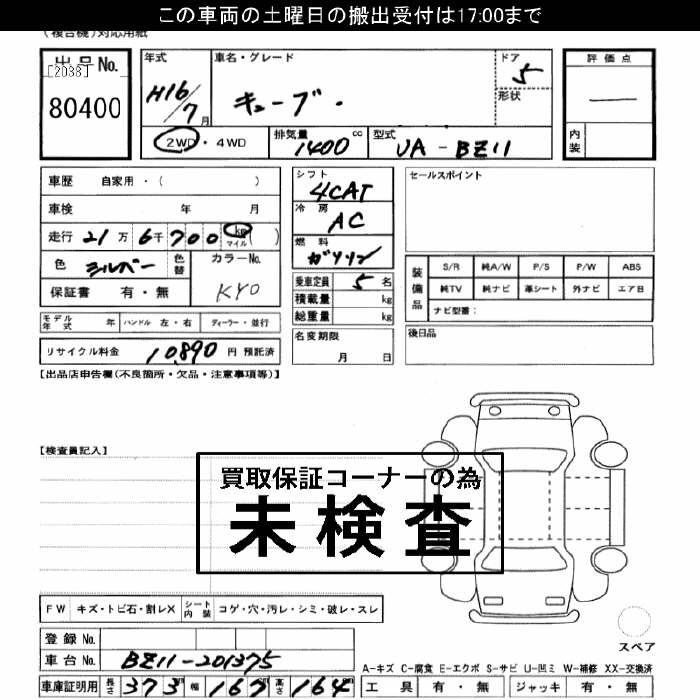 この車両の土曜日の搬出受付は17:00まで
(複合機)対応用紙
出品No.
[2038]
80400
年式
H16/7月
車名・グレード
キューブ.
ドア
5
形状
2WD・4WD
排気量
1400cc
型式
UA-BZ11
評価点
—
内装
車歴 自家用・( )
車検 年 月
走行 21万6千700km マイル( )
色 シルバー
色替
カラーNo.
KY0
保証書 有・無
モデル年式 年 ハンドル 左・右 ディーラー・並行
リサイクル料金 10,890円 預託済
シフト
4CAT
冷房
AC
燃料
ガソリン
乗車定員 5名
積載量 kg
総重量 kg
名変期限
月 日
セールスポイント
装備品
S/R 純A/W P/S P/W ABS
純TV 純ナビ 革シート 外ナビ エア日
ナビ型番:
後日品
【出品店申告欄(不良箇所・欠品・注意事項等)】
【検査員記入】
買取保証コーナーの為
未検査
FW キズ・トビ石・割レX シート内装 コゲ・穴・汚レ・シミ・破レ・スレ
登録No.
車台No. BZ11-201375
車庫証明用 長さ 373cm 幅 167cm 高さ 164cm
スペア
A-キズ C-腐食 E-エクボ S-サビ U-凹ミ W-補修 XX-交換済
工具 有・無 ジャッキ 有・無